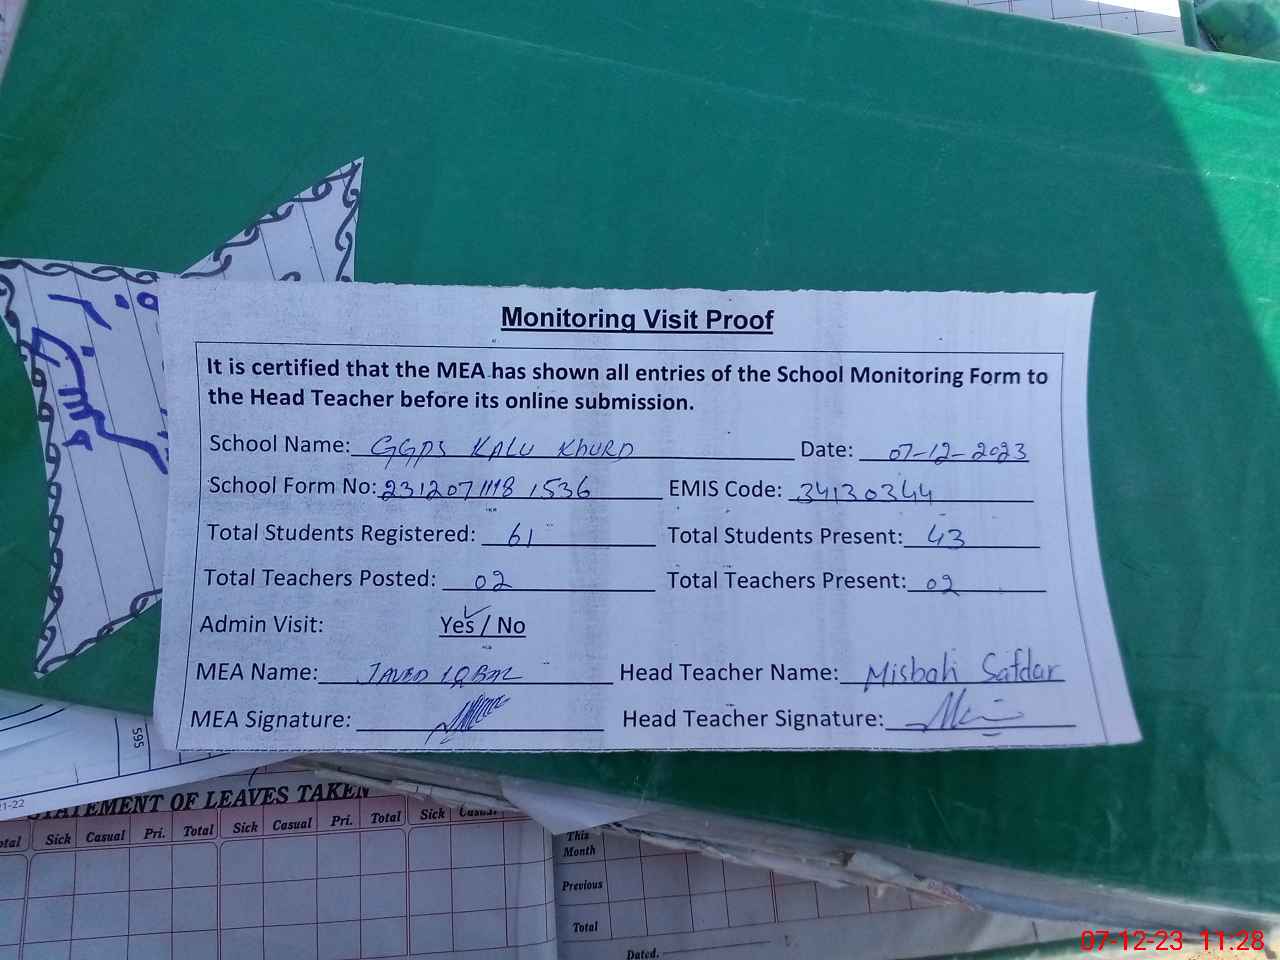 Monitoring Visit Proof
It is certified that the MEA has shown all entries of the School Monitoring Form to
the Head Teacher before its online submission.
School Name: GGPS KALU KHURD Date: 07-12-2023
School Form No: 2312071118 1536 EMIS Code: 34130344
Total Students Registered: 61 Total Students Present: 43
Total Teachers Posted: 02 Total Teachers Present: 02
Admin Visit: Yes / No
MEA Name: JAVED IQBAL Head Teacher Name: Misbah Safdar
MEA Signature: Head Teacher Signature:
595
21-22
STATEMENT OF LEAVES TAKEN
Sick Casual Pri. Total Sick Casual Pri. Total Sick Casual
This
Month
Previous
Total
Dated.
07-12-23 11:28